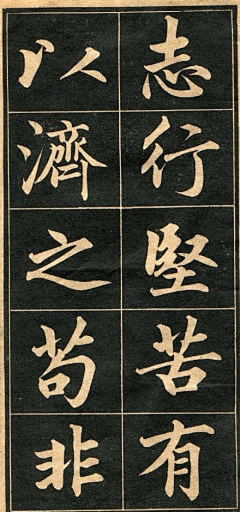 志行堅苦有
以濟之苟非